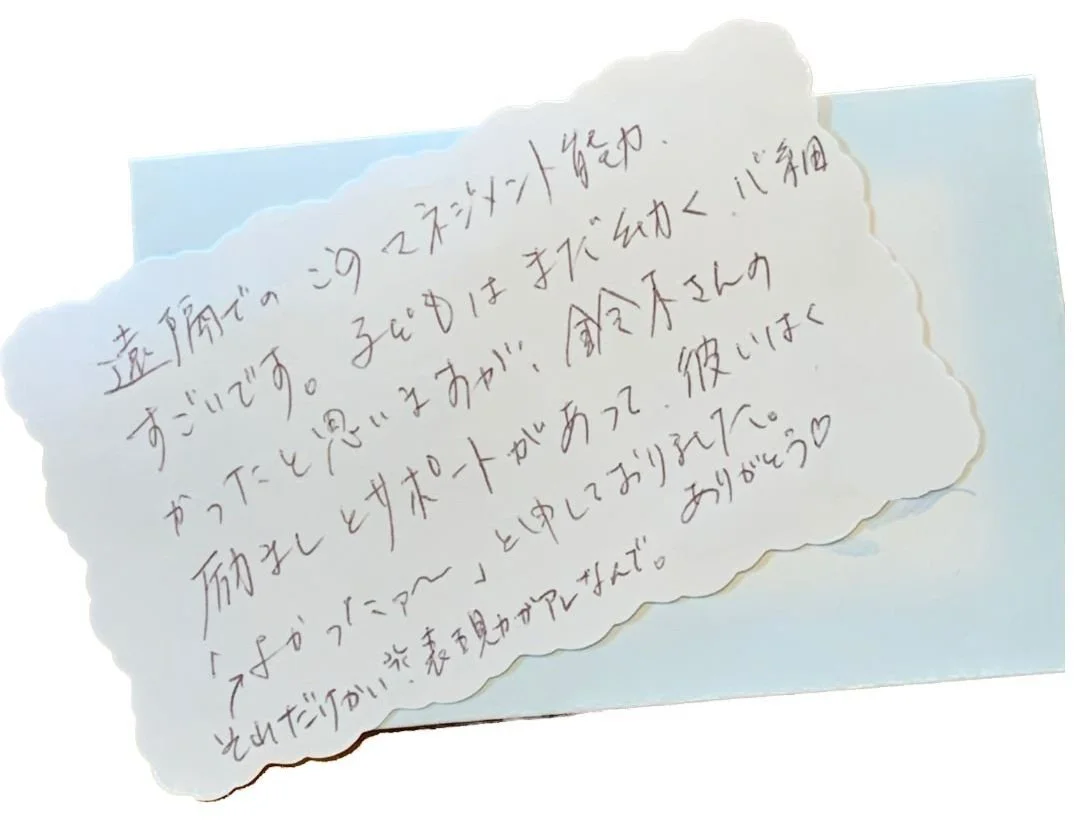 遠隔でのこのマネジメント能力、
すごいです。子どもはまだ幼く、心細
かったと思いますが、鈴木さんの
励ましとサポートがあって、彼いはく
「よかったァ〜」と申しておりました。
ありがとう♡
↗それだけかい※表現力がアレなんで。